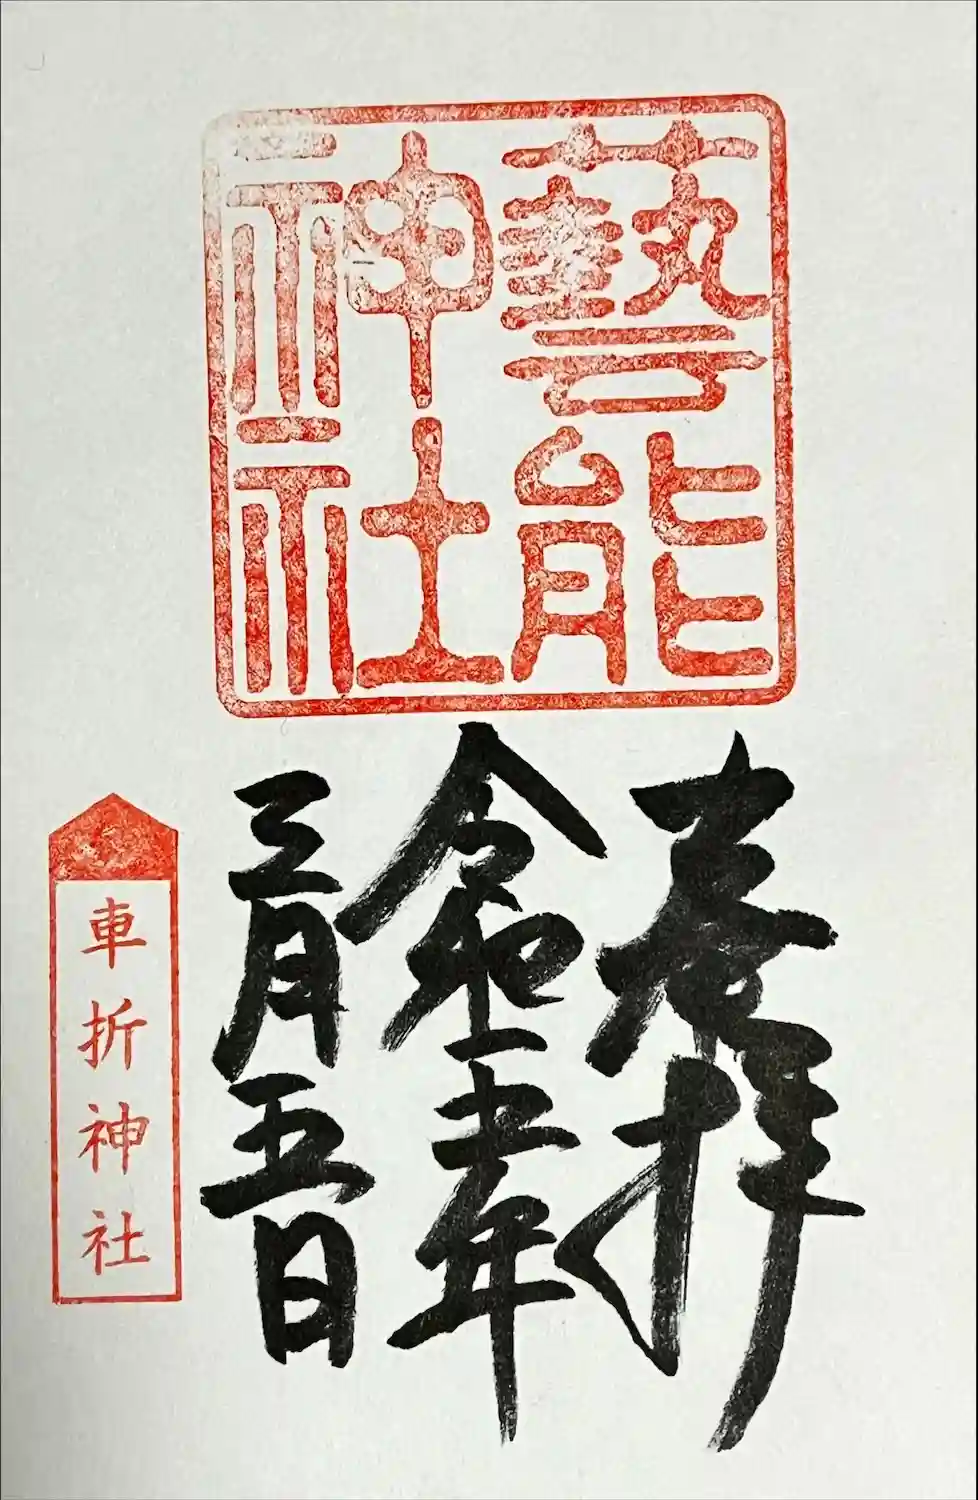 藝能
神社
奉拝
令和五年
三月五日
車折神社